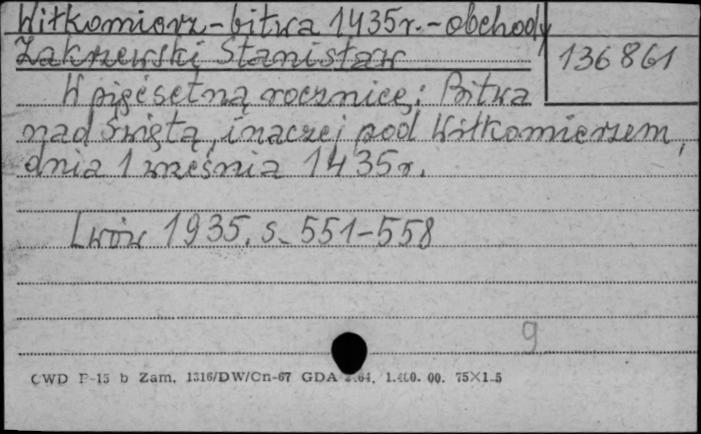 Wiłkomierz - bitwa 1435 r. - obchody
Zakrzewski Stanisław
136861
W pięćsetną rocznicę: Bitwa
nad Świętą, inaczej pod Wiłkomierzem,
dnia 1 września 1435 r.
Lwów 1935. s. 551-558
9
CWD P-15 b Zam. 1316/DW/Cn-67 GDA 1.400. 00. 75×1.5